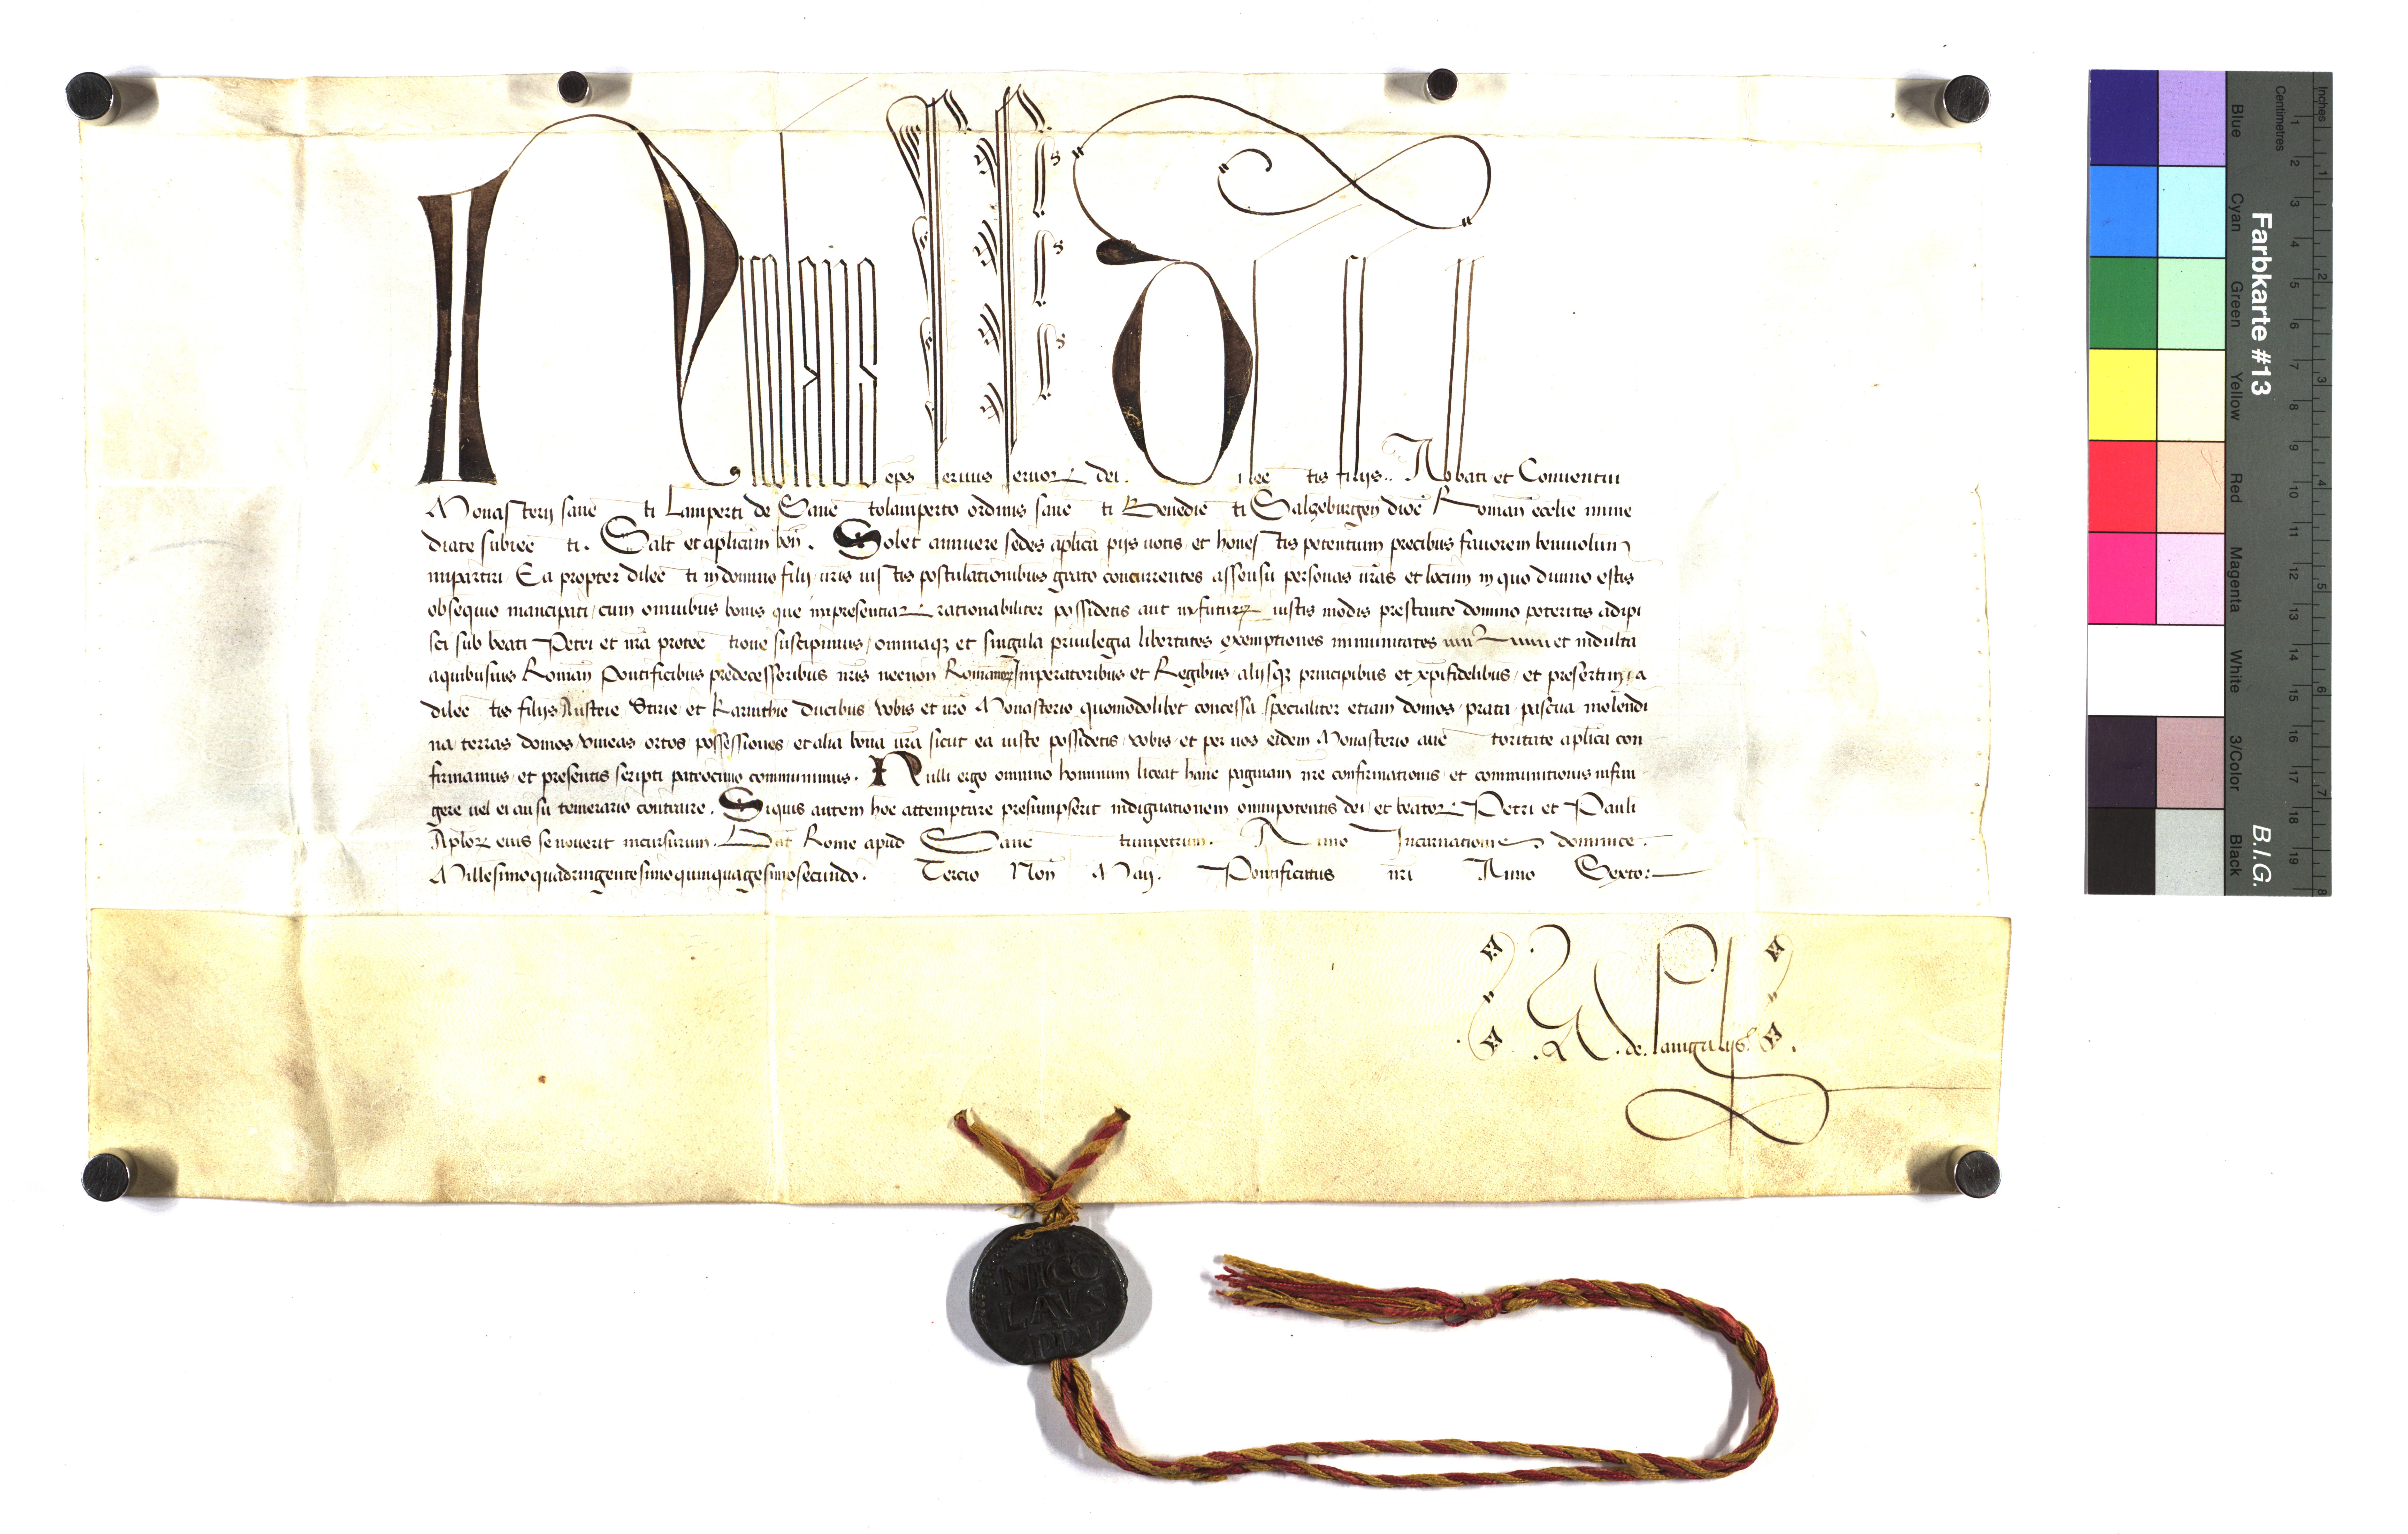 Nicolaus eps servus servor dei. Dilectis filijs.. Abbati et Conventui
Monasterij sancti Lamperti de Sanctolamperto ordinis sancti Benedicti Salzeburgen dioc Roman ecclie imme
diate subiecti. Salt et aplicam ben. Solet annuere sedes aplica pijs votis et honestis petentium precibus favorem benivolum
impartiri. Ea propter dilecti in domino filij vris iustis postulationibus grato concurrentes assensu personas vras et locum in quo divino estis
obsequio mancipati, cum omnibus bonis que inpresentiar rationabiliter possidetis aut infutur iustis modis prestante domino poteritis adipi
sci sub beati Petri et nra protectione suscipimus, omniaq et singula privilegia libertates exemptiones immunitates et indulta
aquibusvis Roman Pontificibus predecessoribus nris necnon Romanor Imperatoribus et Regibus, alijsq principibus et xpifidelibus, et presertim, a
dilectis filijs Austrie Stirie et Karinthie Ducibus vobis et vro Monasterio quomodolibet concessa specialiter etiam domos, prata pascua molendi
na terras domos, vineas ortos, possessiones, et alia bona vra sicut ea iuste possidetis, vobis, et per vos eidem Monasterio auctoritate aplica con
firmamus, et presentis scripti patrocinio communimus. Nulli ergo omnino hominum liceat hanc paginam nre confirmationis et communitionis infrin
gere vel ei ausu temerario contraire. Siquis autem hoc attemptare presumpserit indignationem omnipotentis dei, et beator Petri et Pauli
Aplor eius se noverit incursurum. Dat Rome apud Sanctumpetrum. Anno Incarnationis dominice.
Millesimoquadringentesimoquinquagesimosecundo. Tercio Non Maij. Pontificatus nri Anno Sexto.
. de.
NICO
LAVS
PP V
Farbkarte #13
B.I.G.
Centimetres
Inches
Blue
Cyan
Green
Yellow
Red
Magenta
White
3/Color
Black
1 2 3 4 5 6 7 8 9 10 11 12 13 14 15 16 17 18 19
1 2 3 4 5 6 7 8